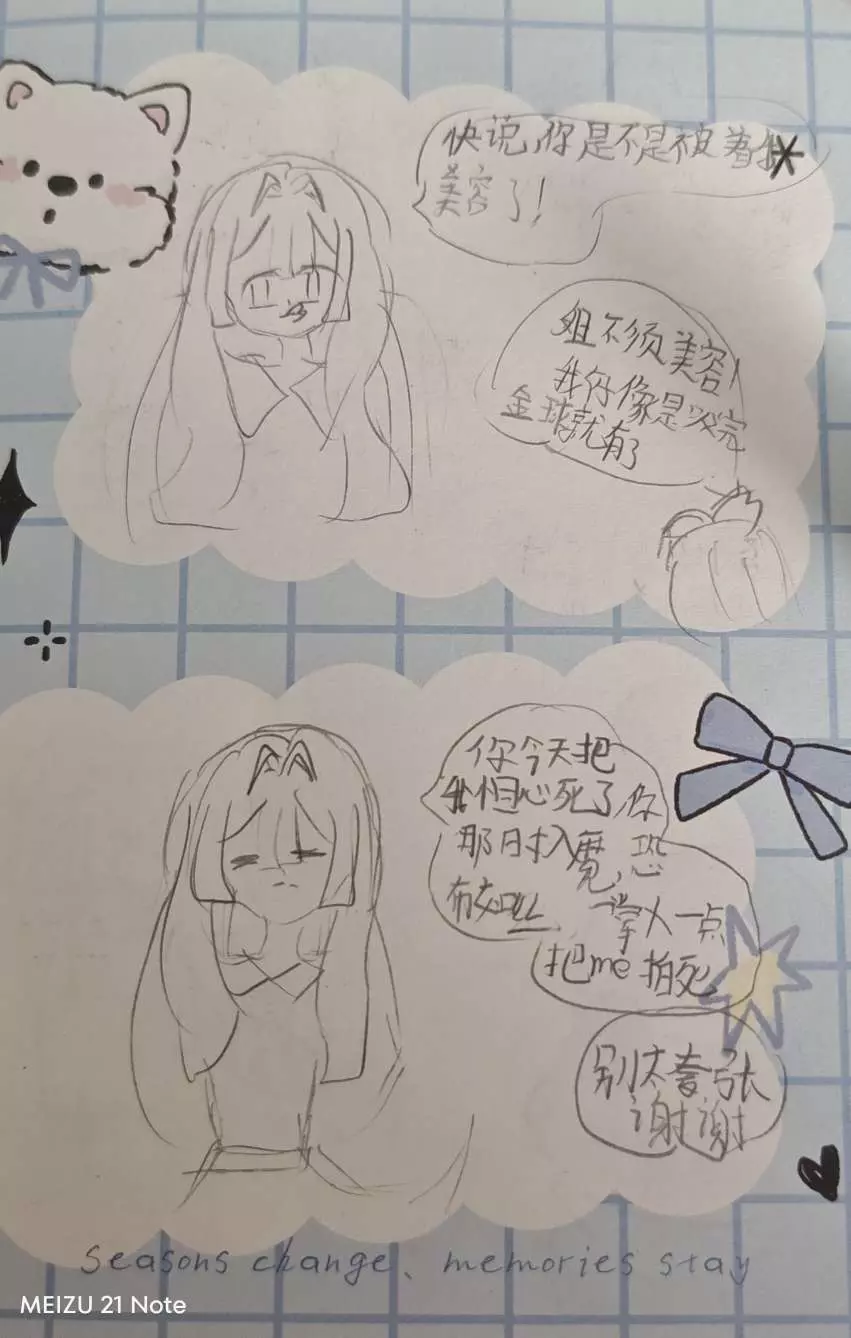 快说,你是不是被着我
美容了!
姐不须美容!
我好像是吸完
金球就有了
你今天把
我担心死了,你
那时入魔,恐
布如
一掌人一点
把me拍死
别太夸张
谢谢
seasons change、memories stay
MEIZU 21 Note